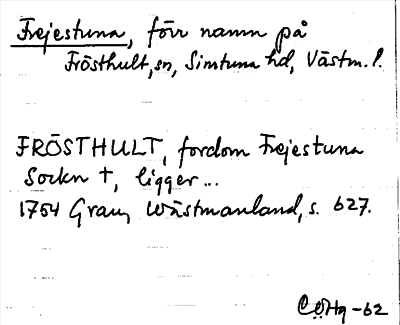 Frejestuna, förr namn på
Frösthult, sn, Simtuna hd, Västm. l.
FRÖSTHULT, fordom Frejestuna
Sockn †, ligger...
1754 Grau, Wästmanland, s. 627.
-62